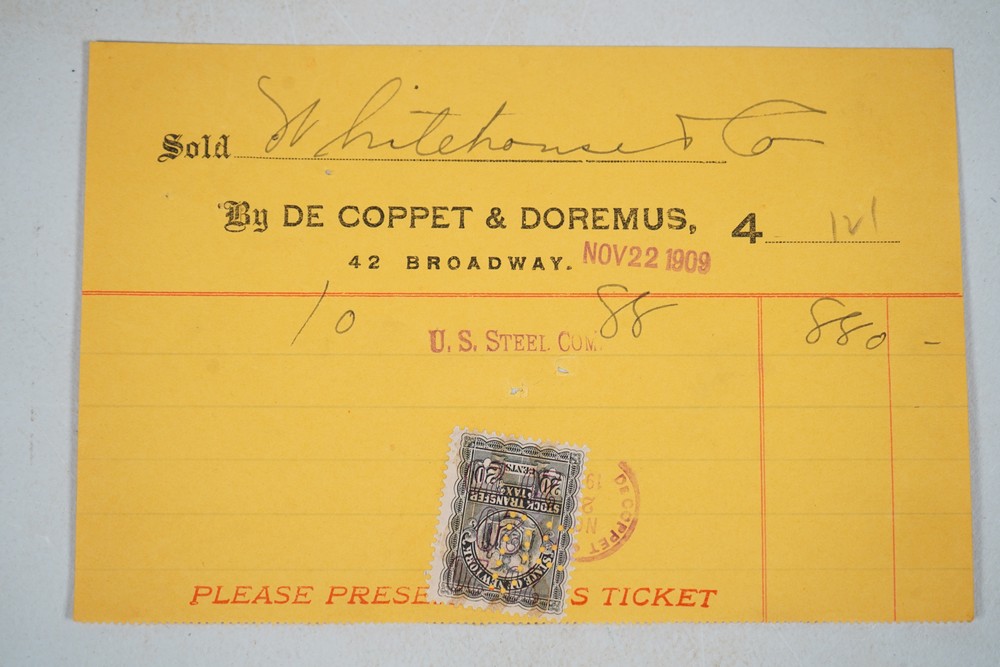 Sold Whitehouse & Co
By DE COPPET & DOREMUS, 4 121
42 BROADWAY. NOV 22 1909
10 U. S. STEEL COM. 88 880 -
STATE OF NEW YORK
STOCK TRANSFER
TAX
20 CENTS 20
DE COPPET &
NO
2
19
PLEASE PRESE S TICKET